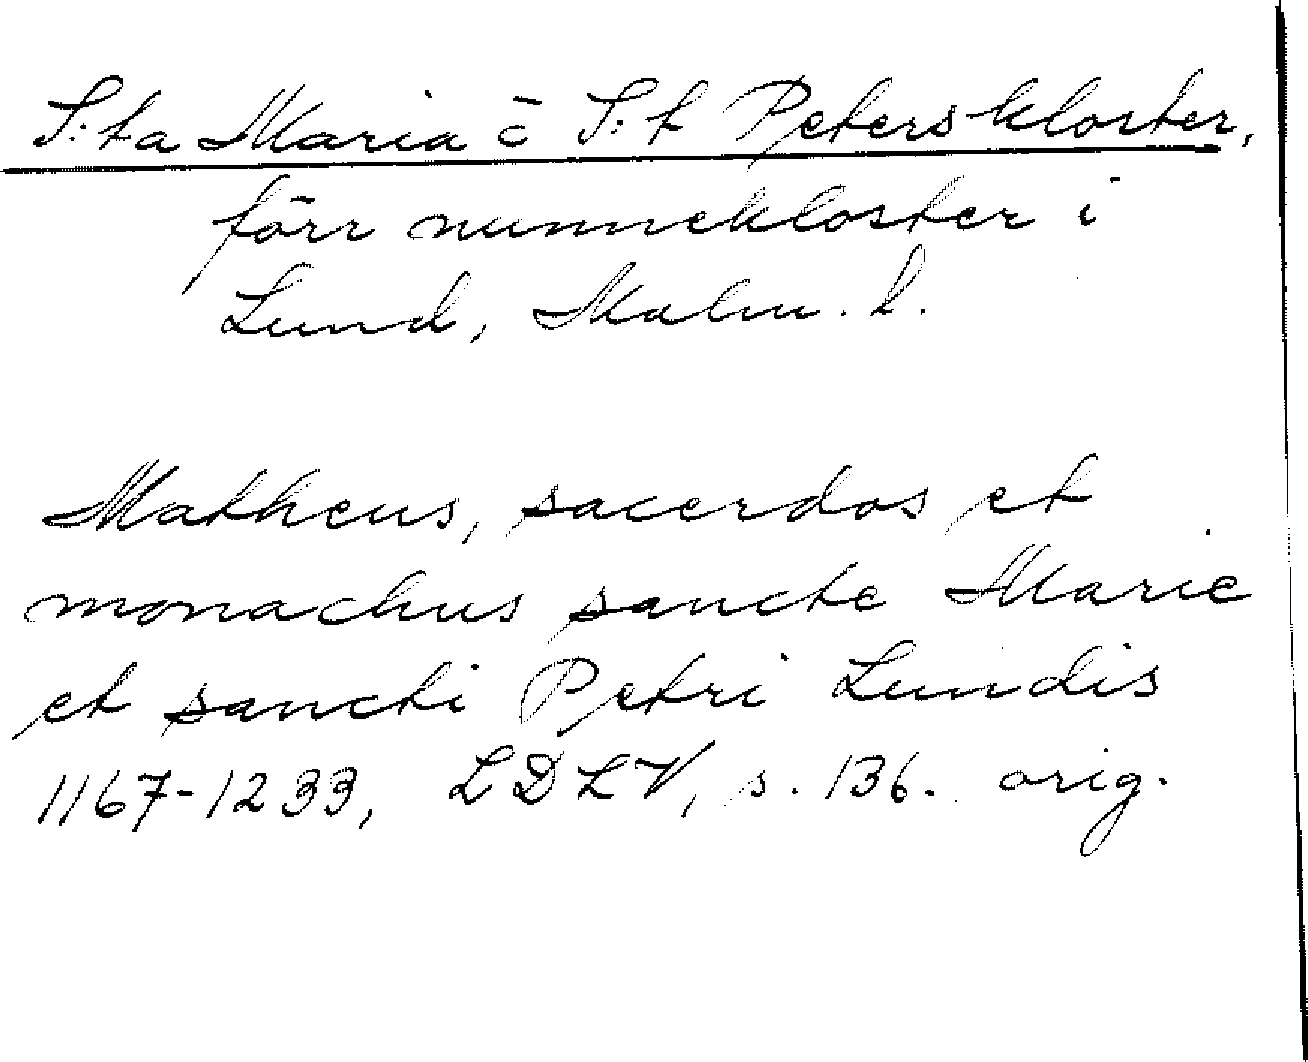 S:ta Maria o S:t Peters kloster,
förr nunnekloster i
Lund, Malm. l.
Matheus, sacerdos et
monachus sancte Marie
et sancti Petri Lundis
1167-1233, LDLV, s. 136. orig.